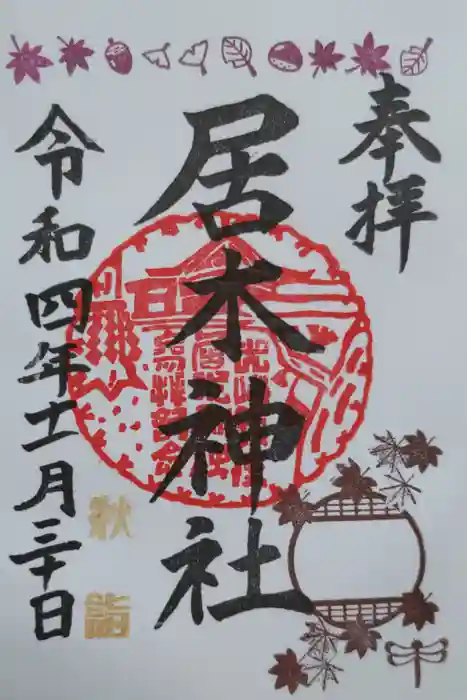 奉拝
居木神社
令和四年十一月三十日
秋詣